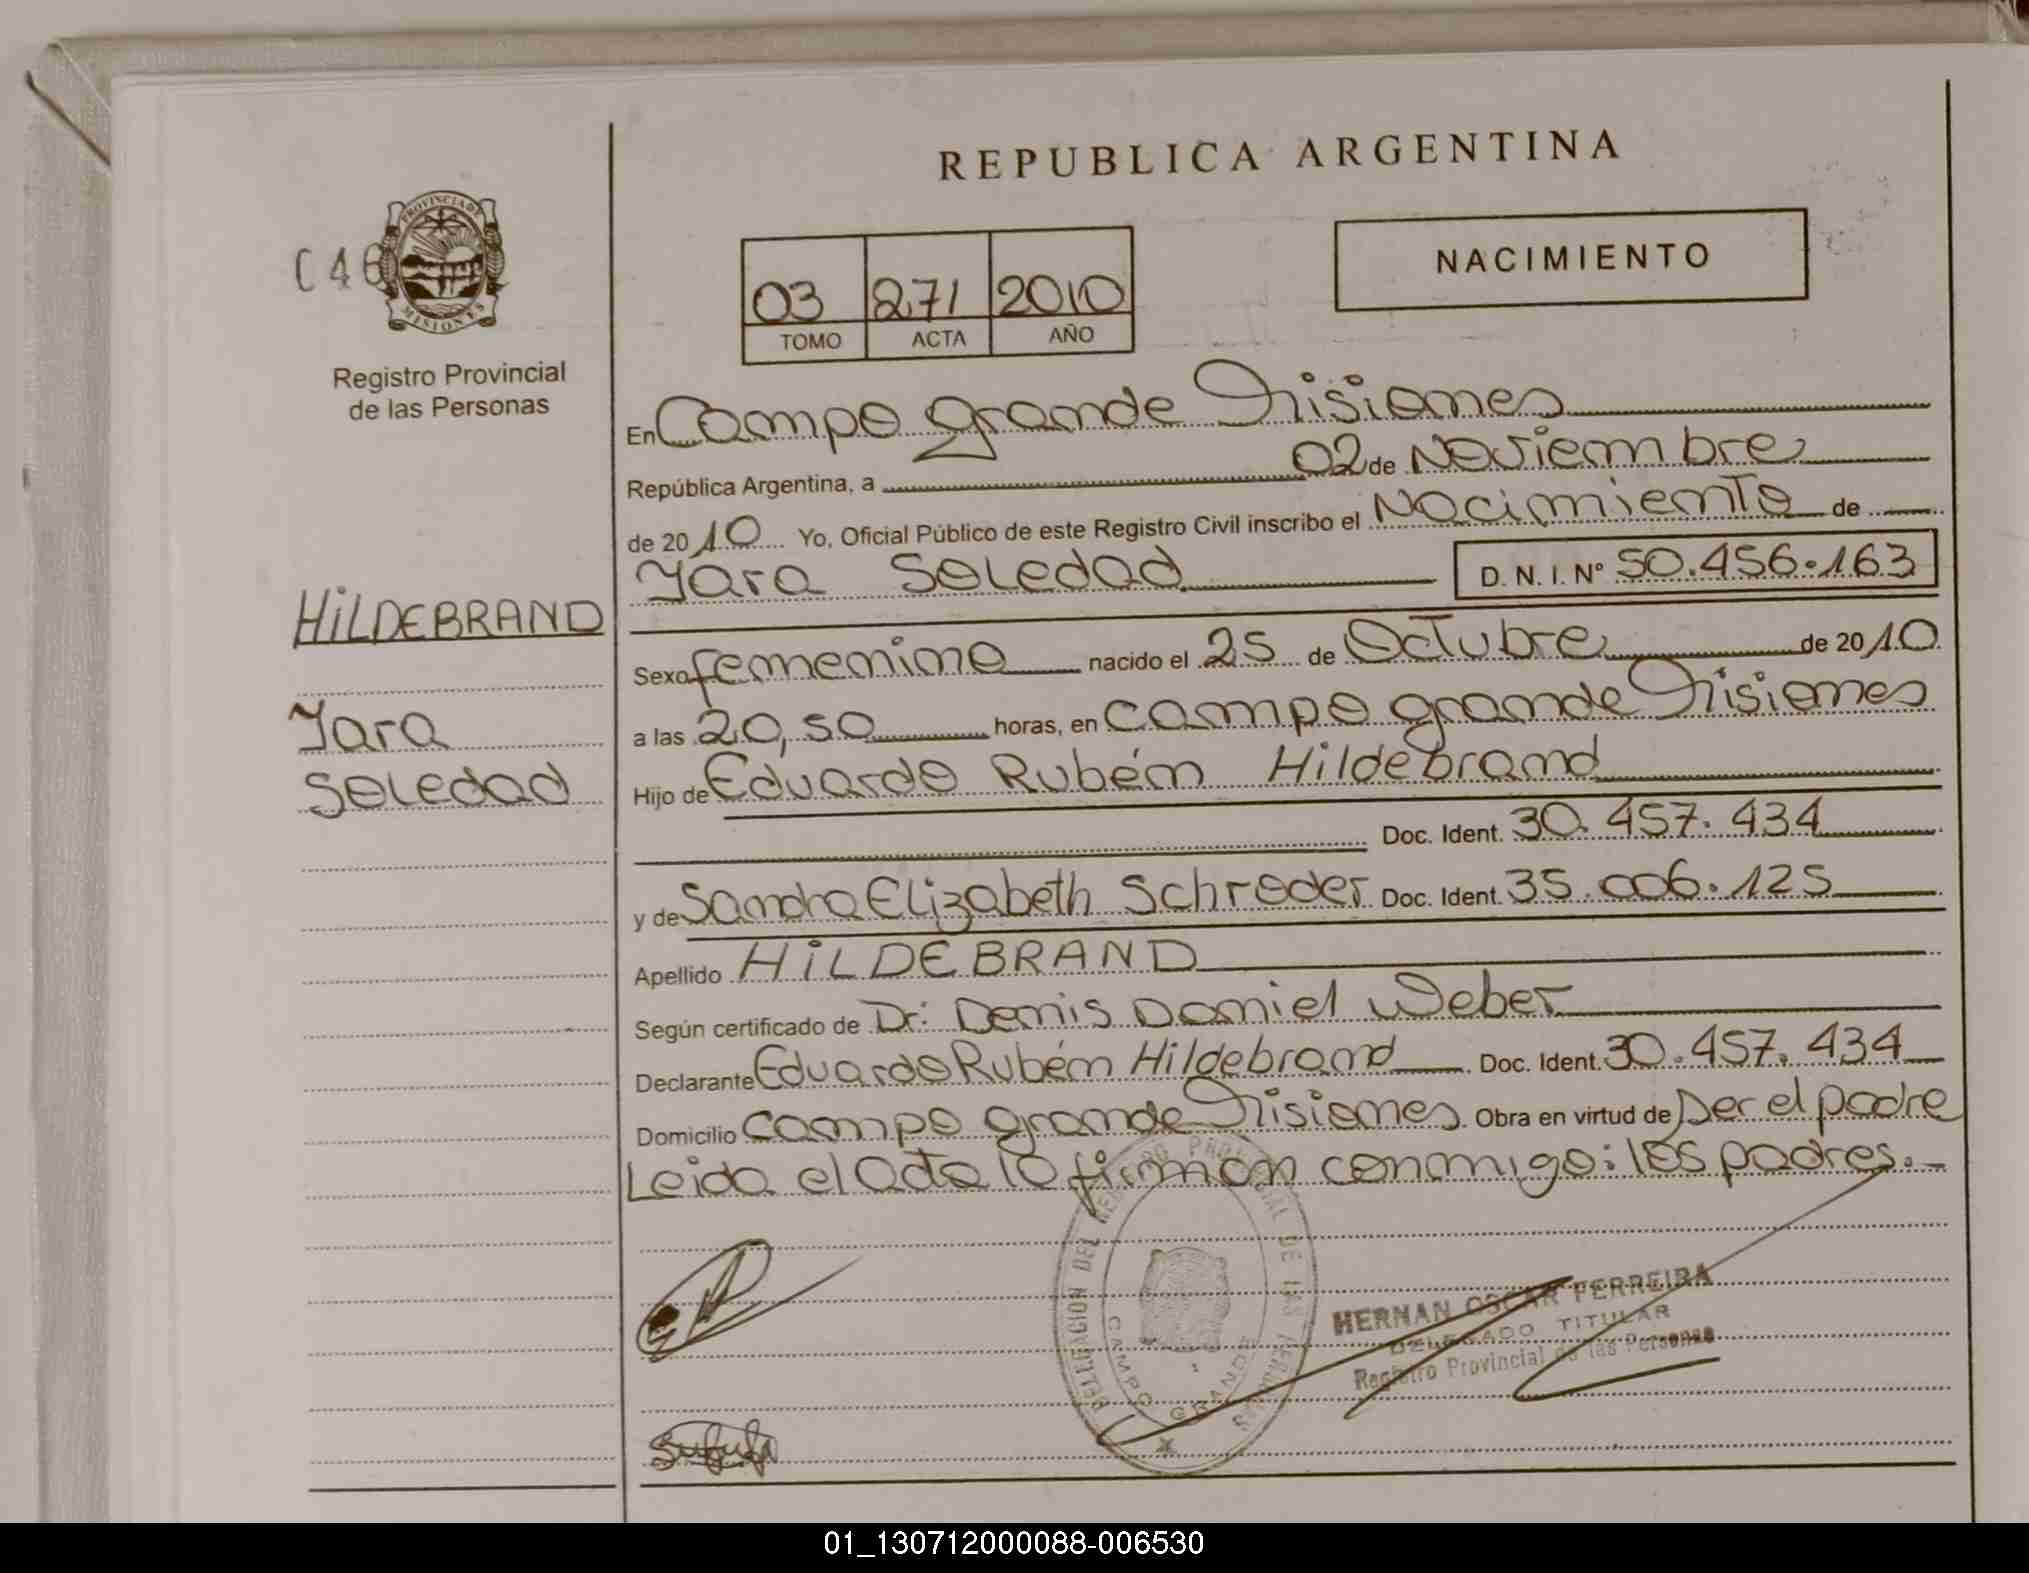 REPUBLICA ARGENTINA
NACIMIENTO
03 271 2010
TOMO ACTA AÑO
C 46
PROVINCIA DE MISIONES
Registro Provincial
de las Personas
HiLDEBRAND
Yara
Soledad
En Campo grande Misiones
República Argentina, a 02 de Noviembre
de 2010 Yo, Oficial Público de este Registro Civil inscribo el Nacimiento de
Yara Soledad D. N. I. Nº 50.456.163
Sexo femenino nacido el 25 de Octubre de 2010
a las 20,50 horas, en campo grande Misiones
Hijo de Eduardo Rubén Hildebrand
Doc. Ident. 30.457.434
y de Sandra Elizabeth Schroder Doc. Ident. 35.006.125
Apellido HiLDEBRAND
Según certificado de Dr: Denis Daniel Weber
Declarante Eduardo Rubén Hildebrand Doc. Ident. 30.457.434
Domicilio campo grande Misiones Obra en virtud de Ser el padre
Leida el acta la firman conmigo: los padres.-
DELEGACION DEL REGISTRO PROVINCIAL DE LAS PERSONAS
CAMPO GRANDE
HERNAN OSCAR FERREIRA
DELEGADO TITULAR
Registro Provincial de las Personas
01_130712000088-006530